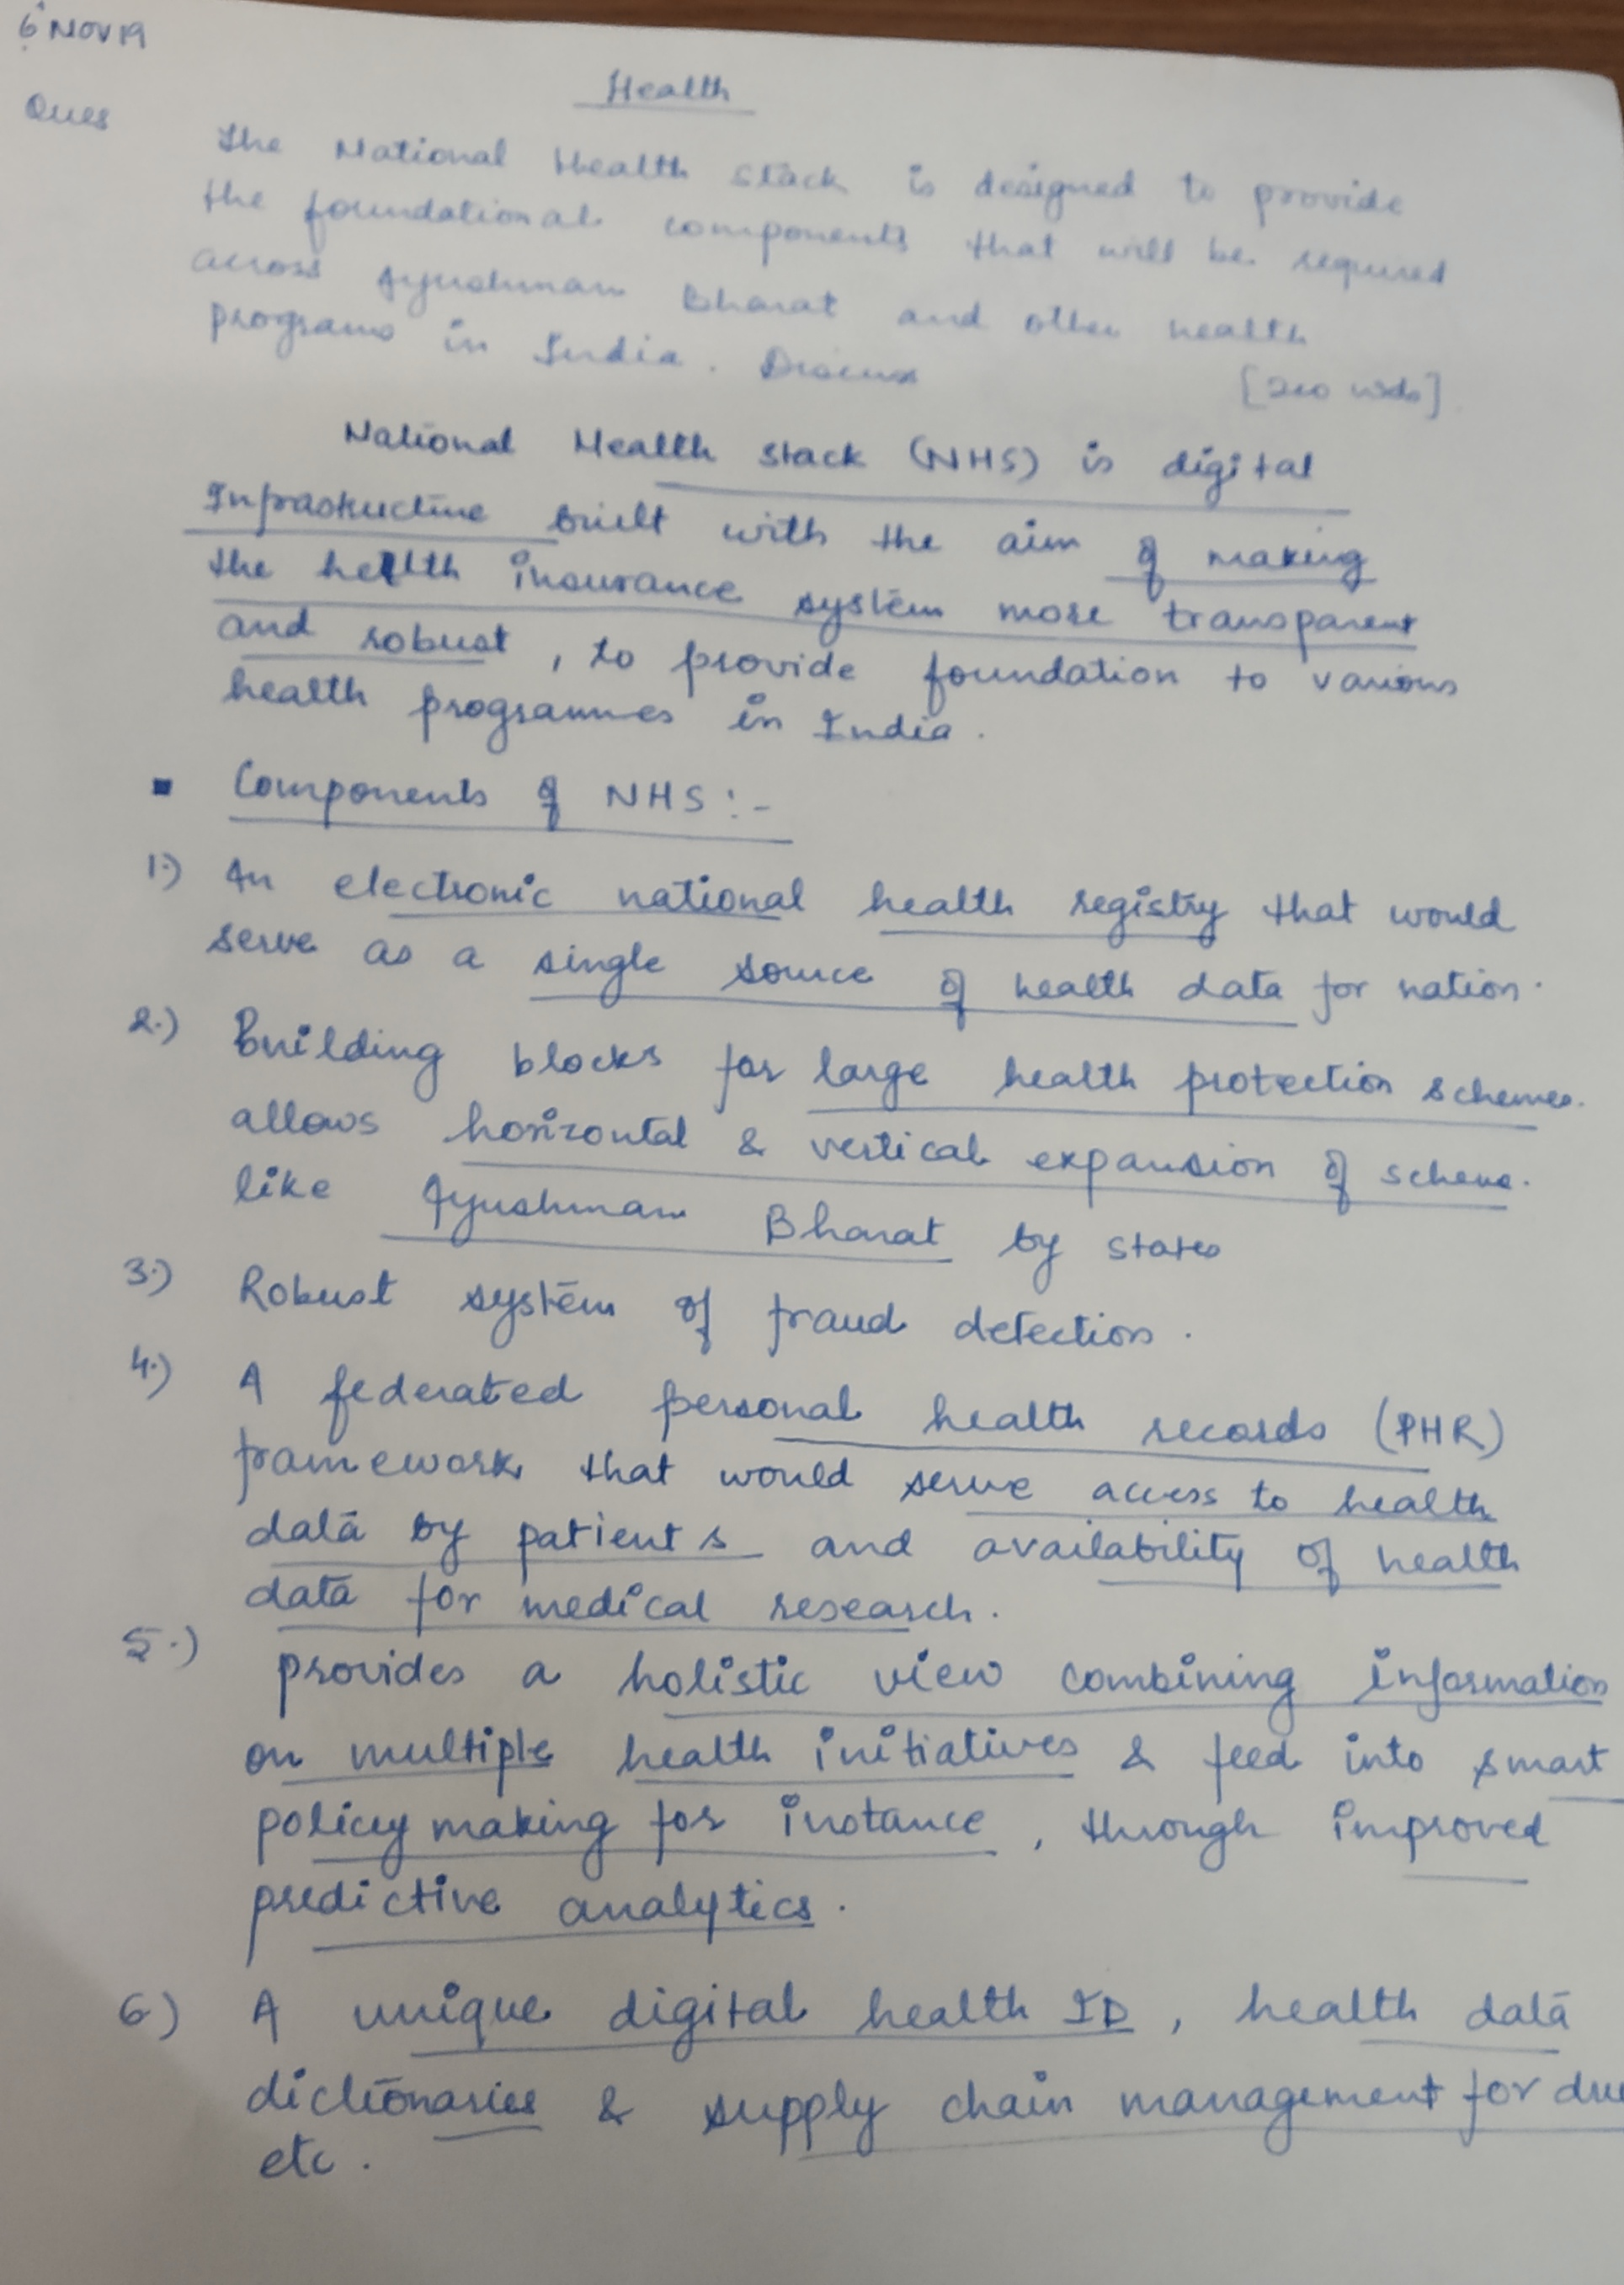 6 Nov 19
Health
Ques
The National Health Stack is designed to provide
the foundational components that will be required
across Ayushman Bharat and other health
programs in India. Discuss [200 wds]
National Health Stack (NHS) is digital
Infrastructure built with the aim of making
the health insurance system more transparent
and robust, to provide foundation to various
health programmes in India.
▪ Components of NHS:-
1.) An electronic national health registry that would
serve as a single source of health data for nation.
2.) Building blocks for large health protection schemes.
allows horizontal & vertical expansion of scheme.
like Ayushman Bharat by states
3.) Robust system of fraud detection.
4.) A federated personal health records (PHR)
framework that would serve access to health
data by patients and availability of health
data for medical research.
5.) provides a holistic view combining information
on multiple health initiatives & feed into smart
policy making for instance, through improved
predictive analytics.
6) A unique digital health ID, health data
dictionaries & supply chain management for
etc.